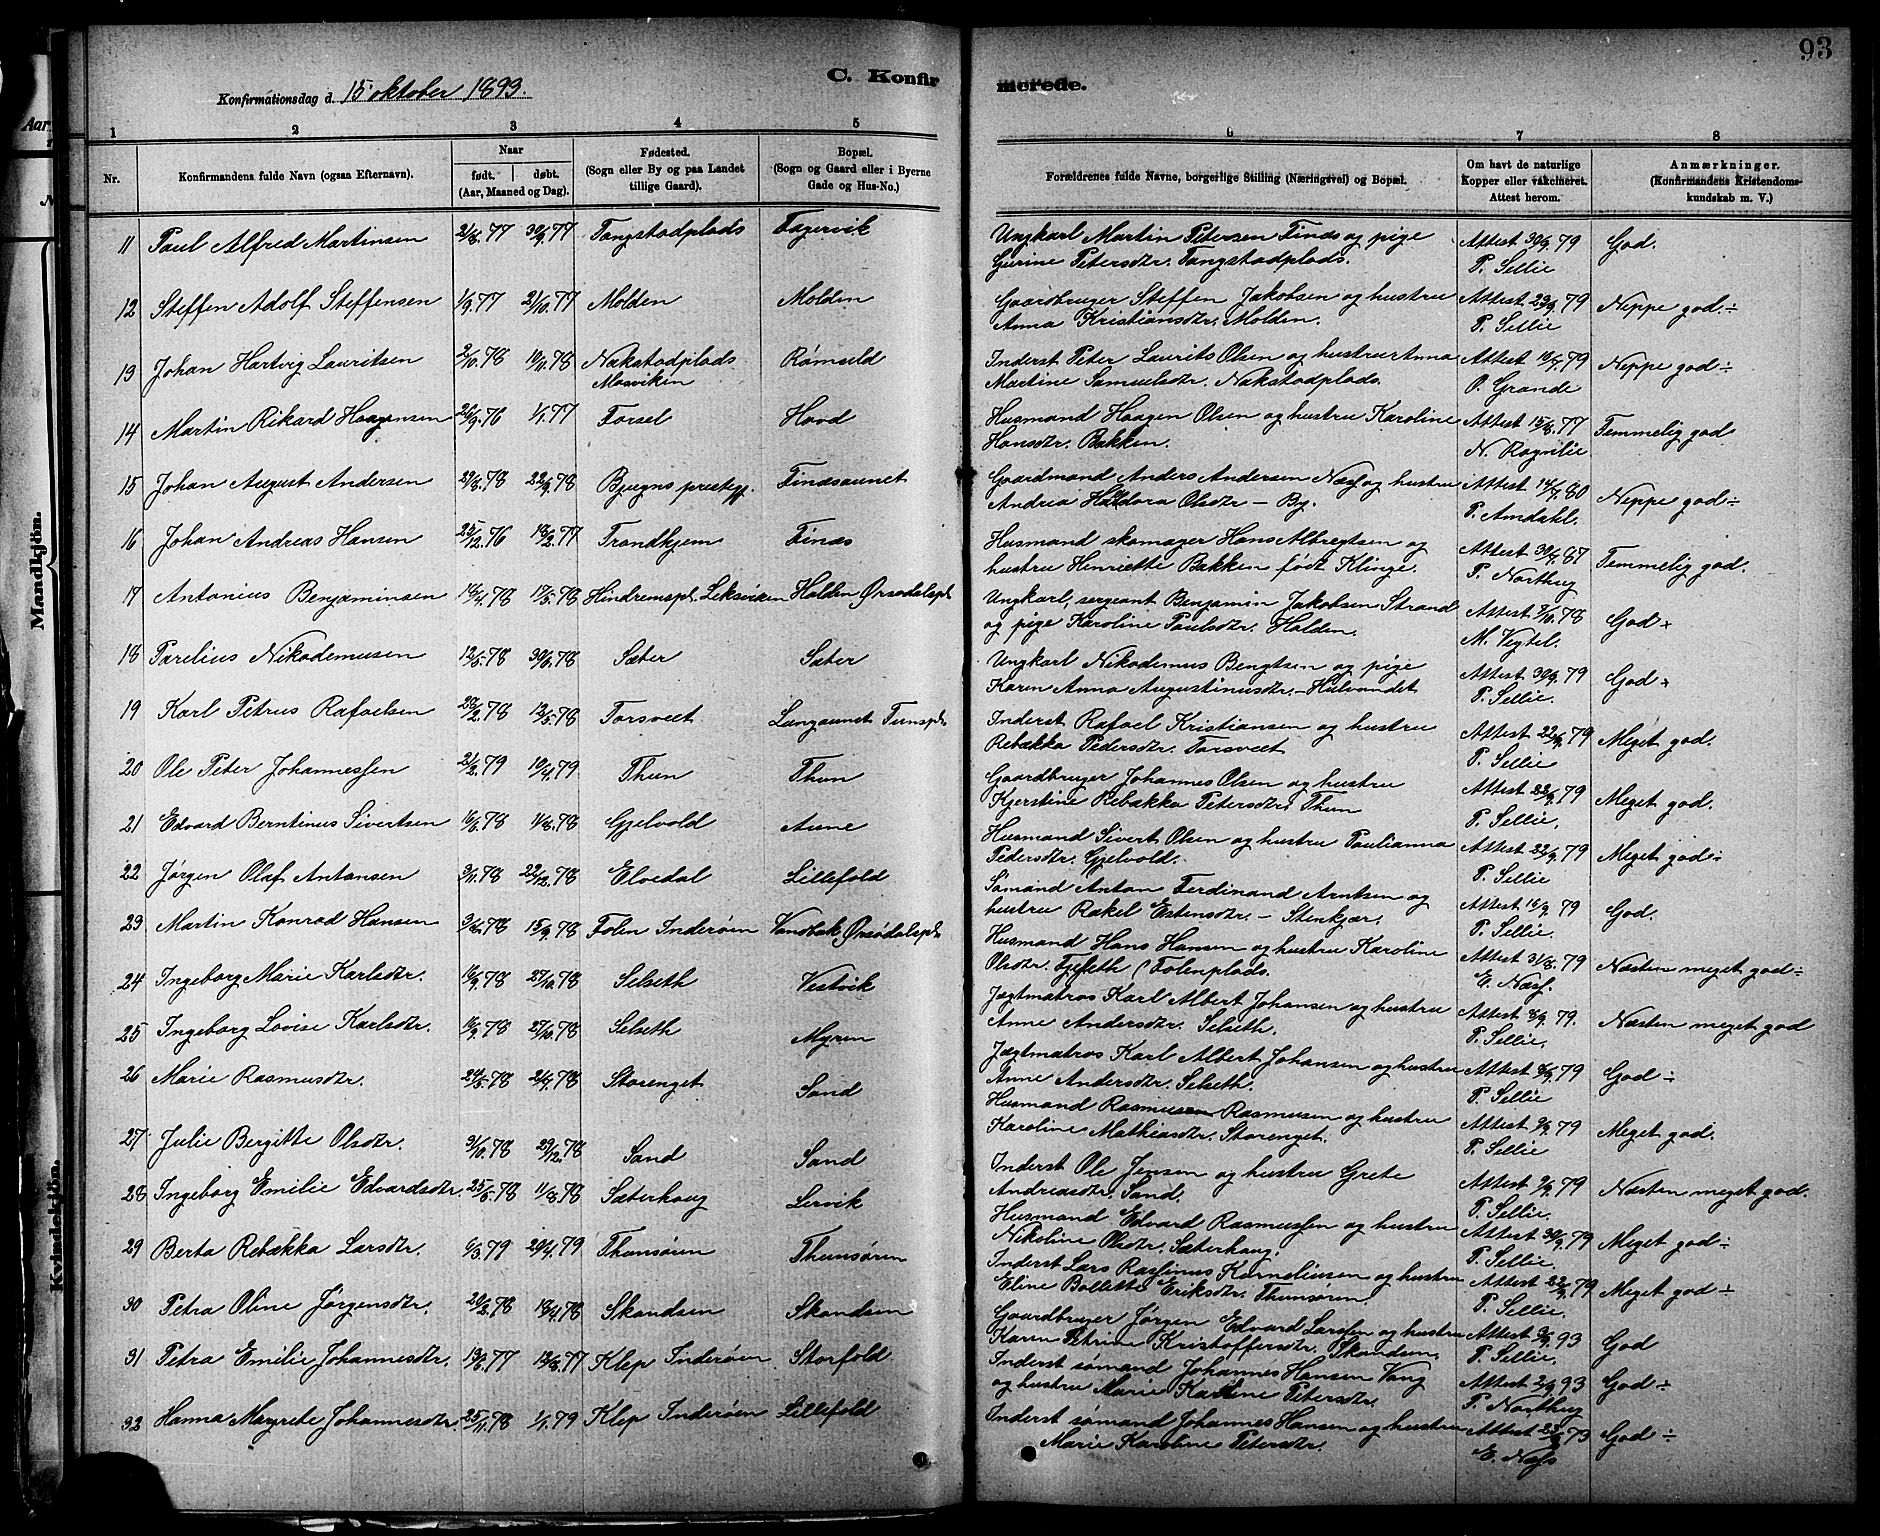 93
C. Konfirmerede.
Konfirmationsdag d. 15 oktober 1893.
1 2 3 4 5 6 7 8
Nr.
Konfirmandens fulde Navn (ogsaa Efternavn).
Naar
født. døbt.
(Aar, Maaned og Dag).
Fødested.
(Sogn eller By og paa Landet
tillige Gaard).
Bopæl.
(Sogn og Gaard eller i Byerne
Gade og Hus-No.)
Forældrenes fulde Navne, borgerlige Stilling (Næringsvei) og Bopæl.
Om havt de naturlige
Kopper eller vakcineret.
Attest herom.
Anmærkninger.
(Konfirmandens Kristendoms-
kundskab m. V.)
Mandkjön.
Kvindekjön.
11 Paul Alfred Martinsen 21/8.77 30/9.77 Tangstadplads Fagervik Ungkarl Martin Petersen Finæs og pige Attest 30/9.79 God.
Gurine Petersdtr. Tangstadplads. P. Sellie
12 Steffen Adolf Steffensen 1/9.77 21/10.77 Molden Molden Gaardbruger Steffen Jakobsen og hustru Attest 22/9.79 Neppe god.÷
Anna Kristiansdtr. Molden. P. Sellie
13 Johan Hartvig Lauritsen 2/10.78 10/11.78 Nakstadplads Rømuld Inderst Peter Laurits Olsen og hustru Anna Attest 79 Neppe god÷
Mosviken Martine Samuelsdtr. Nakstadplads. O. Grande
14 Martin Rikard Haagensen 26/9.76 1/1.77 Forsel Hovd Husmand Haagen Olsen og hustru Karoline Attest 15/8.77 Temmelig god
Hansdtr. Bakken. N. Ragnlie
15 Johan August Andersen 29/8.78 22/9.78 Bjugns prestegj. Finæsaunet Gaardmand Anders Andersen Næss og hustru Attest 14/7.80 Neppe god÷
Andrea Haldora Olsdtr – By. P. Amdahl.
16 Johan Andreas Hansen 25/12.76 18/2.77 Trondhjem Finæs Husmand skomager Hans Albregtsen og Attest 87 Temmelig god.
hustru Henriette Bakken født Klinge. P. Northug
17 Antonius Benjaminsen 18/4.78 78 Hindremspl. Leksviken Holden Ørsødalspl. Ungkarl, sergeant Benjamin Jakobsen Strand Attest 78 God÷
og pige Karoline Paulsdtr. Holden. M. Vegtel.
18 Parelius Nikodemusen 12/5.78 30/6.78 Sæter Sæter Ungkarl Nikodemus Bengtsen og pige Attest 30/9.79 God÷
Karen Anna Augustinusdtr. – Hulvandet P. Sellie.
19 Karl Petrus Rafaelsen 28/2.78 12/5.78 Forsveet Langaunet Inderst Rafael Kristiansen og hustru Attest 22/9.79 Meget god.
Rebækka Pedersdtr. Forsveet P. Sellie
20 Ole Peter Johannessen 21/2.79 10/4.79 Thun Thun Gaardbruger Johannes Olsen og hustru Attest 22/9.79 Meget god.
Kjerstine Rebækka Petersdtr. Thun P. Sellie.
21 Edvard Berntinus Sivertsen 16/6.78 11/8.78 Gjelvold Aune Husmand Sivert Olsen og hustru Paulianna Attest 22/9.79 Meget god÷
Pedersdtr. Gjelvold. P. Sellie
22 Jørgen Olaf Antonsen 3/11.78 22/12.78 Elvedal Lillefold Sømand Anton Ferdinand Arntsen og Attest 16/9.79 God.
hustru Rakel Estensdtr. – Stenkjær. P. Sellie.
23 Martin Konrad Hansen 3/8.78 15/9.78 Folen Inderøen Vandbak Ørsødalspl. Husmand Hans Hansen og hustru Karoline Attest 31/8.79 Næsten meget god÷
Olsdtr. Folenplads. E. Næss.
24 Ingeborg Marie Karlsdtr. 16/9.78 27/10.78 Selseth Vestvik Jægtmatros Karl Albert Johansen og hustru Attest 79. Næsten meget god
Anne Andersdtr. Selseth. P. Sellie.
25 Ingeborg Lovise Karlsdtr. 16/9.78 27/10.78 Selseth Myren Jægtmatros Karl Albert Johansen og hustru Attest 79 God÷
Anne Andersdtr. Selseth. P. Sellie
26 Marie Rasmusdtr. 24/5.78 78 Storenget Sand Husmand Rasmus Rasmusen og hustru Attest 79 Meget god.
Karoline Mathiasdtr. Storenget. P. Sellie
27 Julie Bergitte Olsdtr. 31/10.78 29/12.78 Sand Sand Inderst Ole Jensen og hustru Grete Attest 79 Næsten meget god.
Andreasdtr. Sand. P. Sellie.
28 Ingeborg Emilie Edvardsdtr. 25/5.78 11/8.78 Sæterhaug Lervik Husmand Edvard Rasmussen og hustru Attest 30/9.79 Meget god÷
Nikoline Olsdtr. Sæterhaug. P. Sellie.
29 Berta Rebækka Larsdtr. 6/3.79 20/4.79 Thunsøren Thunsøren Inderst Lars Rasjinus Korneliusen og hustru Attest 22/9.79 Meget god÷
Eline Bollette Eriksdtr. Thunsøren. P. Sellie.
30 Petra Oline Jørgensdtr. 20/2.78 18/4.78 Skandsen Skandsen Gaardbruger Jørgen Edvard Larssen og hustru Attest 93 God
Karen Petrine Kristoffersdtr. Skandsen. P. Sellie.
31 Petra Emilie Johannesdtr. 13/6.77 12/8.77 Klep Inderøen Storfold Inderst sømand Johannes Hansen Vang Attest 93 God÷
og hustru Marie Karoline Petersdtr. P. Northug
32 Hanna Margrete Johannesdtr. 25/11.78 1/1.79 Klep Inderøen Lillefold Inderst sømand Johannes Hansen og hustru Attest God÷
Marie Karoline Petersdtr. E. Næss